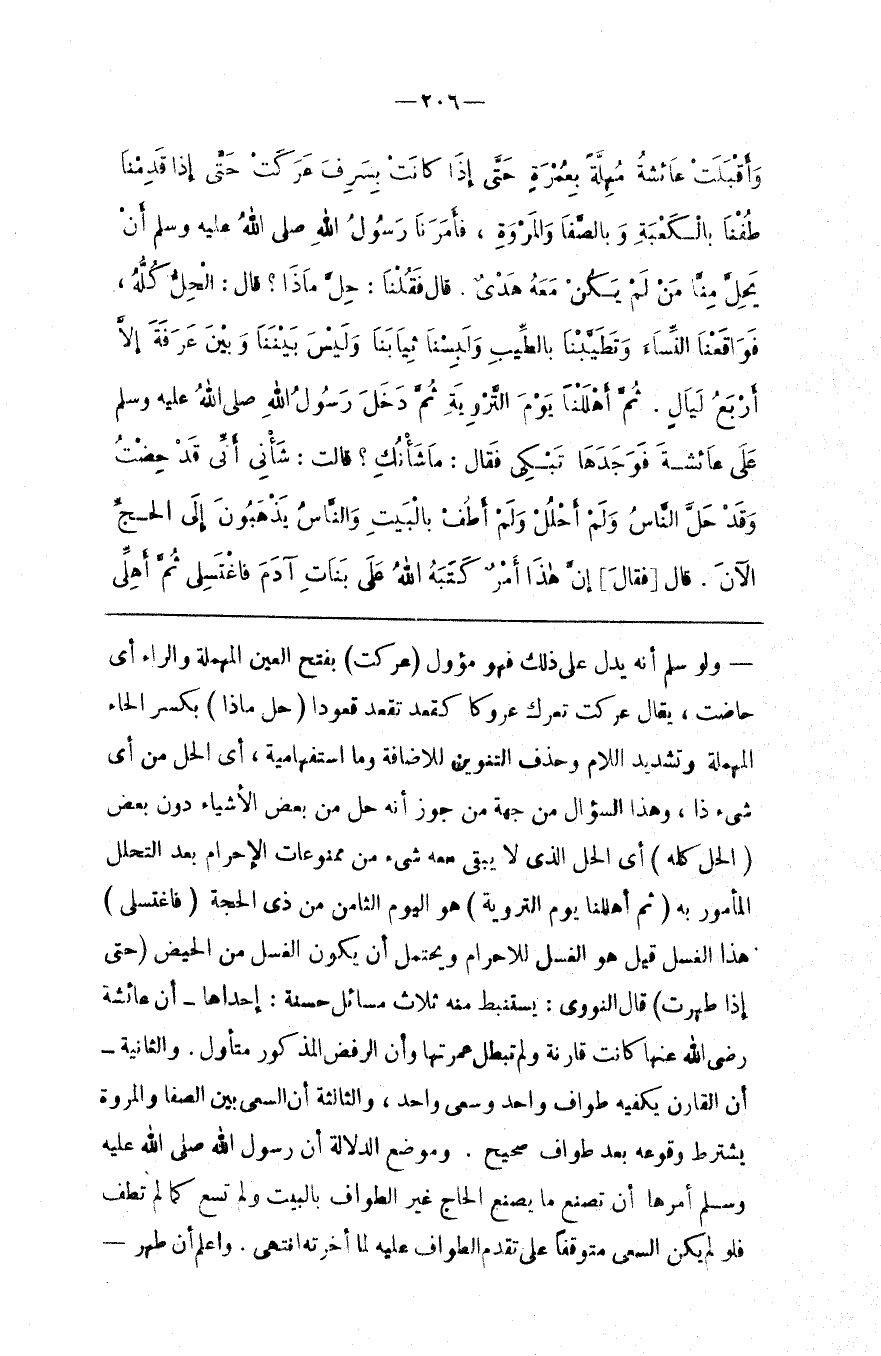 —٢٠٦—
وَأَقْبَلَتْ عَائشةُ مُهِلَّةً بِعُمْرَةٍ حَتَّى إِذَا كَانَتْ بِسَرِفَ عَرَكَتْ حَتَّى إِذا قَدِمْنَا
طُفْنَا بِالْكَعْبَةِ وَبالصَّفَا وَالمَرْوَةِ ، فَأَمَرَنَا رَسُولُ اللهِ صلى اللهُ عليه وسلم أَنْ
يَحِلَّ مِنَّا مَنْ لَمْ يَكُنْ مَعَهُ هَدْىٌ . قال فَقُلْنَا : حِلُّ مَاذَا ؟ قال : الْحِلُّ كُلُّهُ ،
فَوَاقَعْنَا النِّسَاءَ وَتَطَيَّبْنَا بالطِّيبِ وَلَبِسْنَا ثِيَابَنَا وَلَيْسَ بَيْنَنَا وَبَيْنَ عَرَفَةَ إِلاَّ
أَرْبَعُ لَيَالٍ . ثُمَّ أَهْلَلْنَا يَوْمَ التَّرْوِيَةِ ثُمَّ دَخَلَ رَسُولُ اللهِ صلى اللهُ عليه وسلم
عَلَى عَائشةَ فَوَجَدَهَا تَبْكِى فَقال : مَاشَأْنُكِ ؟ قالت : شَأْنِى أَنِّى قَدْ حِضْتُ
وَقَدْ حَلَّ النَّاسُ وَلَمْ أَحْلُلْ وَلَمْ أَطُفْ بالْبَيتِ وَالنَّاسُ يَذْهَبُونَ إِلَى الحجِّ
الآنَ . قال [فقالَ] إِنَّ هٰذَا أَمْرٌ كَتَبَهُ اللهُ عَلَى بَنَاتِ آدَمَ فَاغْتَسِلِى ثُمَّ أَهِلِّى
— ولو سلم أنه يدل على ذلك فهو مؤول (عركت) بفتح العين المهملة والراء أى
حاضت ، يقال عركت تعرك عروكا كقعد تقعد قعودا (حل ماذا) بكسر الحاء
المهملة وتشديد اللام وحذف التنوين للاضافة وما استفهامية ، أى الحل من أى
شىء ذا ، وهذا السؤال من جهة من جوز أنه حل من بعض الأشياء دون بعض
( الحل كله ) أى الحل الذى لا يبقى معه شىء من ممنوعات الإحرام بعد التحلل
المأمور به ( ثم أهللنا يوم التروية ) هو اليوم الثامن من ذى الحجة ( فاغتسلى )
هذا الغسل قيل هو الغسل للاحرام ويحتمل أن يكون الغسل من الحيض (حتى
إذا طهرت) قال النووى : يستنبط منه ثلاث مسائل حسنة : إحداها ـ أن عائشة
رضى الله عنها كانت قارنة ولم تبطل عمرتها وأن الرفض المذكور متأول . والثانية ـ
أن القارن يكفيه طواف واحد وسعى واحد ، والثالثة أن السعى بين الصفا والمروة
يشترط وقوعه بعد طواف صحيح . وموضع الدلالة أن رسول الله صلى الله عليه
وسلم أمرها أن تصنع ما يصنع الحاج غير الطواف بالبيت ولم تسع كما لم تطف
فلو لم يكن السعى متوقفاً على تقدم الطواف عليه لما أخرته انتهى . واعلم أن طهر —